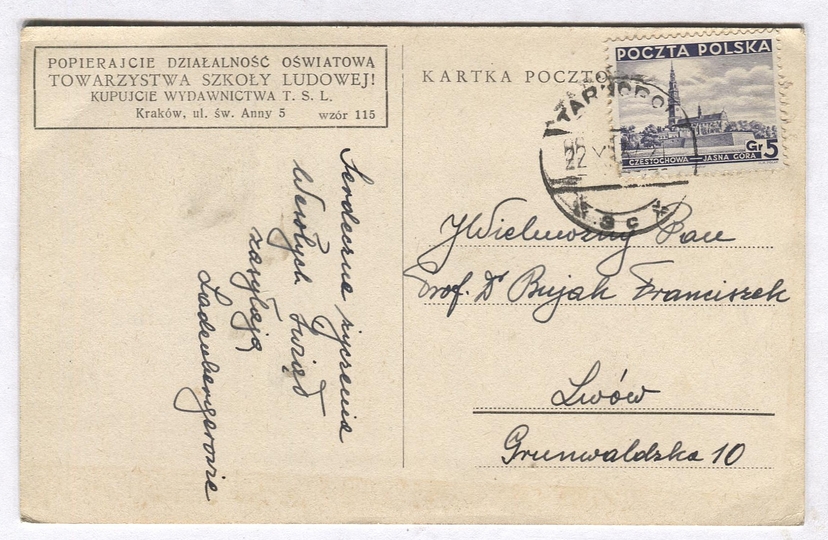 POPIERAJCIE DZIAŁALNOŚĆ OŚWIATOWĄ
TOWARZYSTWA SZKOŁY LUDOWEJ!
KUPUJCIE WYDAWNICTWA T. S. L.
Kraków, ul. św. Anny 5 wzór 115
KARTKA POCZTO
POCZTA POLSKA
CZĘSTOCHOWA — JASNA GÓRA
Gr 5
TARNOPOL
22
* 3 c *
Serdeczne życzenia
Wesołych Świąt
zasyłają
Ladenbergerowie
JWielmożny Pan
Prof. Dr Bujak Franciszek
Lwów
Grunwaldzka 10